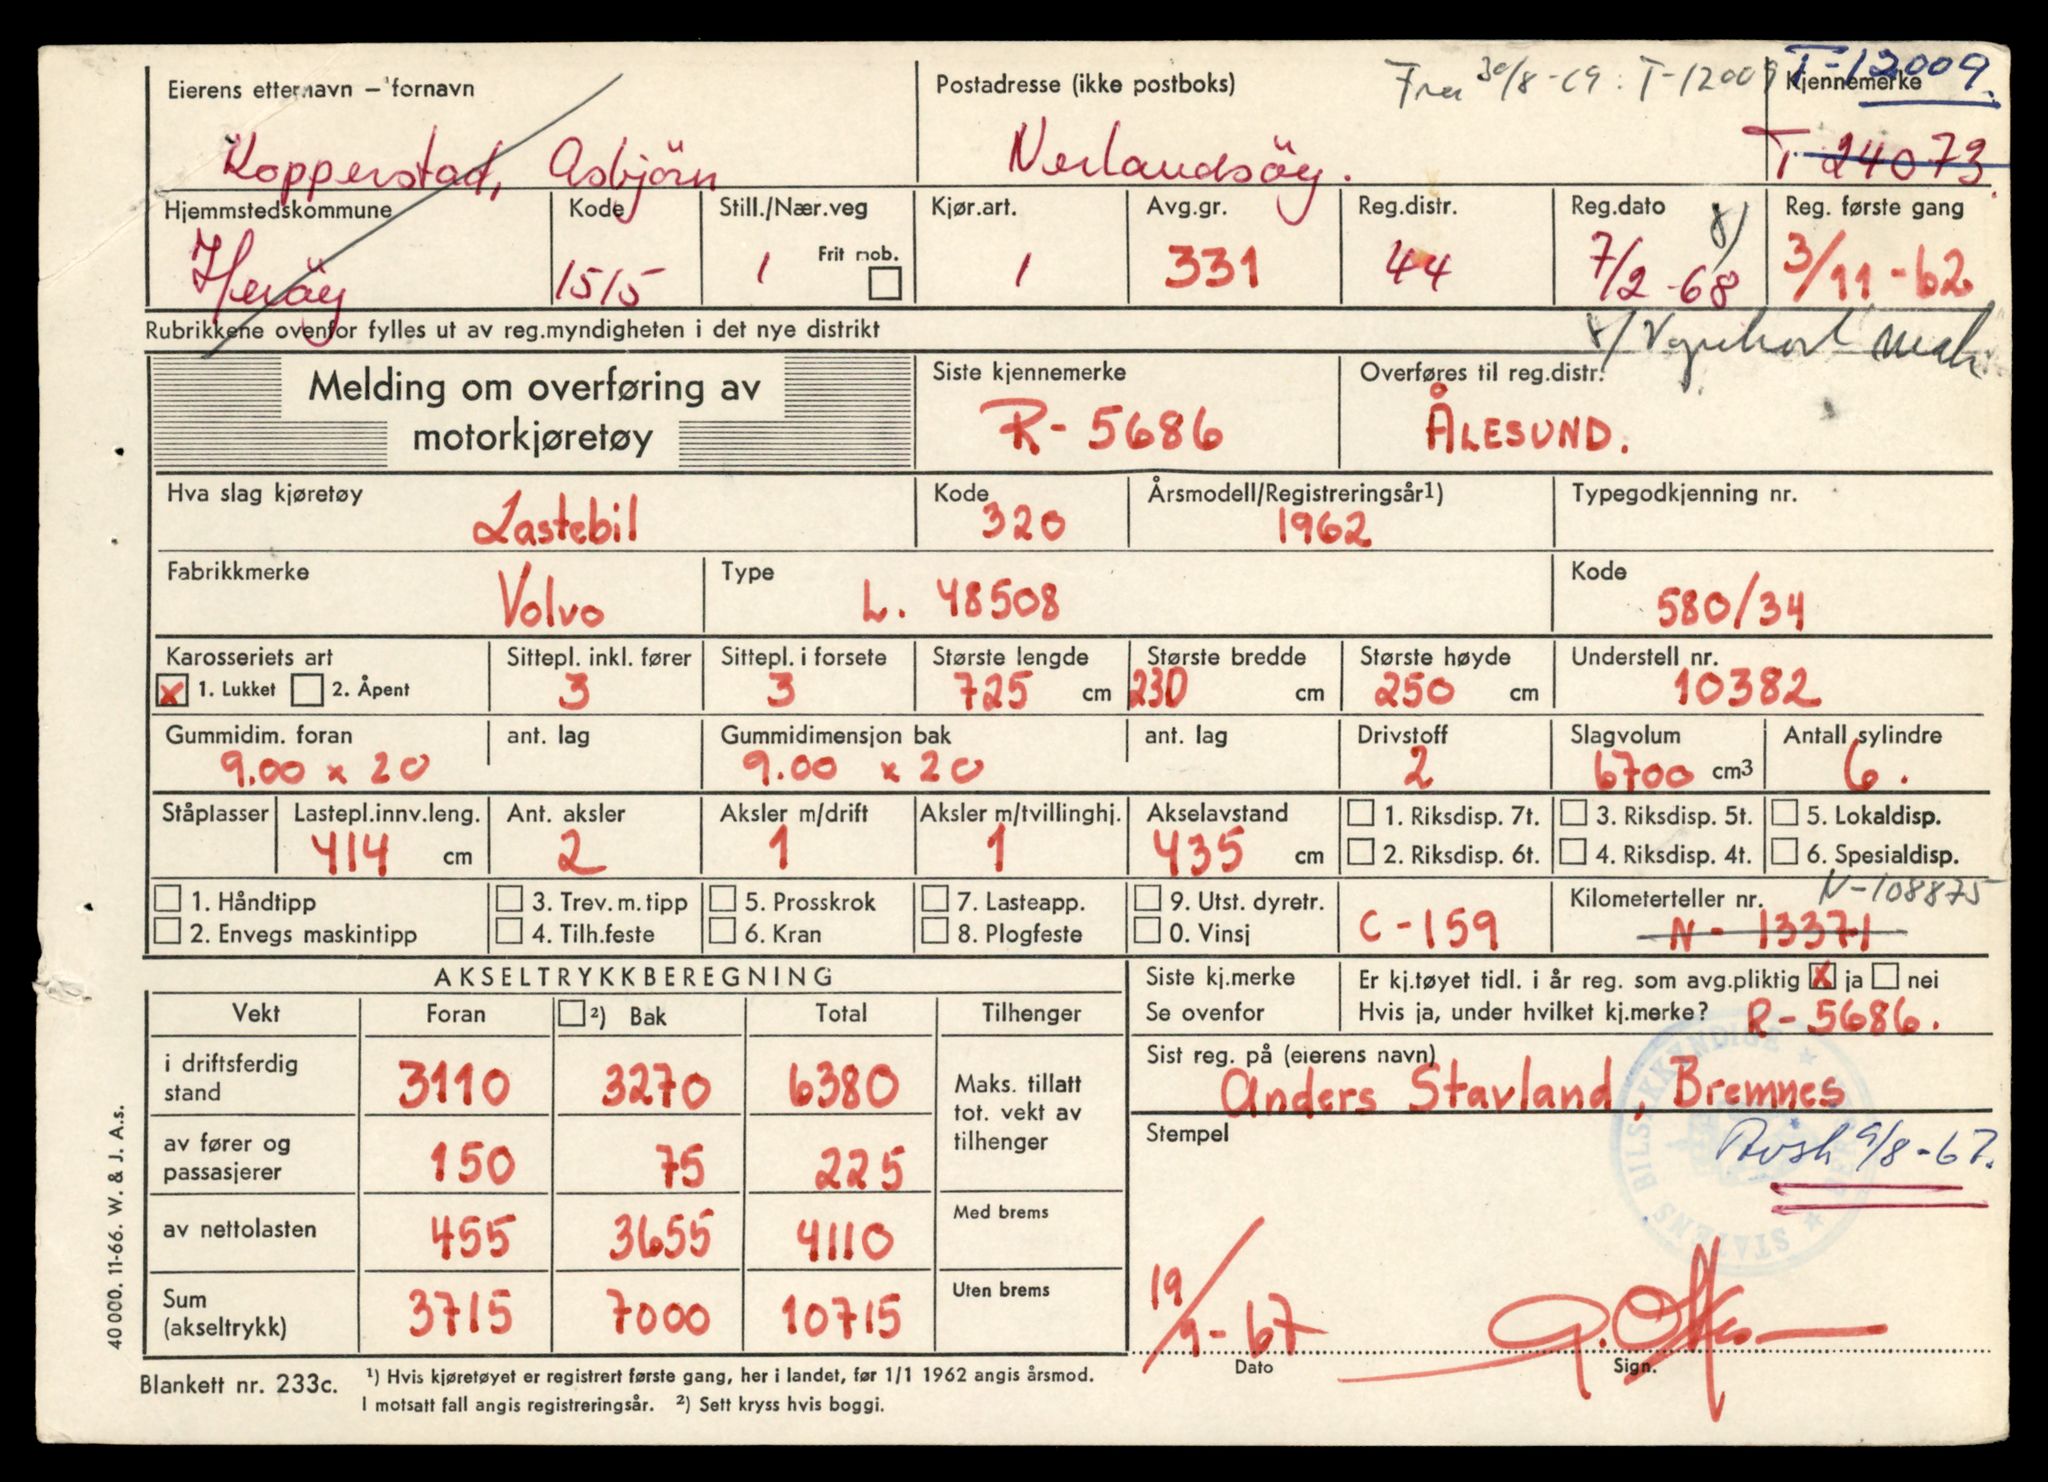 Eierens etternavn – fornavn Postadresse (ikke postboks) Fra 30/8-69: T-12009 Kjennemerke T-12009.
Kopperstad, Asbjörn Nerlandsöy. T-24073.
Hjemmstedskommune Kode Still./Nær.veg Kjør.art. Avg.gr. Reg.distr. Reg.dato x) Reg. første gang
Heröy 1515 1 Frit mob. 1 331 44 7/2-68 3/11-62
Rubrikkene ovenfor fylles ut av reg.myndigheten i det nye distrikt x/ Vognkort
Melding om overføring av motorkjøretøy
Siste kjennemerke Overføres til reg.distr.
R-5686 ÅLESUND.
Hva slag kjøretøy Kode Årsmodell/Registreringsår1) Typegodkjenning nr.
Lastebil 320 1962
Fabrikkmerke Type Kode
Volvo L. 48508 580/34
Karosseriets art Sittepl. inkl. fører Sittepl. i forsete Største lengde Største bredde Største høyde Understell nr.
x 1. Lukket 2. Åpent 3 3 725 cm 230 cm 250 cm 10382
Gummidim. foran ant. lag Gummidimensjon bak ant. lag Drivstoff Slagvolum Antall sylindre
9.00 x 20 9.00 x 20 2 6700 cm3 6.
Ståplasser Lastepl.innv.leng. Ant. aksler Aksler m/drift Aksler m/tvillinghj. Akselavstand 1. Riksdisp. 7t. 3. Riksdisp. 5t. 5. Lokaldisp.
414 cm 2 1 1 435 cm 2. Riksdisp. 6t. 4. Riksdisp. 4t. 6. Spesialdisp.
1. Håndtipp 3. Trev. m. tipp 5. Prosskrok 7. Lasteapp. 9. Utst. dyretr. C-159 Kilometerteller nr. N-108875
2. Envegs maskintipp 4. Tilh.feste 6. Kran 8. Plogfeste 0. Vinsj N-13371
AKSELTRYKKBEREGNING Siste kj.merke Er kj.tøyet tidl. i år reg. som avg.pliktig x ja nei
Vekt Foran 2) Bak Total Tilhenger Se ovenfor Hvis ja, under hvilket kj.merke? R-5686.
i driftsferdig stand 3110 3270 6380 Maks. tillatt tot. vekt av tilhenger
Sist reg. på (eierens navn)
Anders Stavland, Bremnes
av fører og passasjerer 150 75 225
Stempel
9/8-67.
STATENS BILSAKKYNDIGE
av nettolasten 455 3655 4110 Med brems
Sum (akseltrykk) 3715 7000 10715 Uten brems
19/9-67
Dato Sign.
Blankett nr. 233c. 1) Hvis kjøretøyet er registrert første gang, her i landet, før 1/1 1962 angis årsmod.
I motsatt fall angis registreringsår. 2) Sett kryss hvis boggi.
40 000. 11-66. W. & J. A.s.